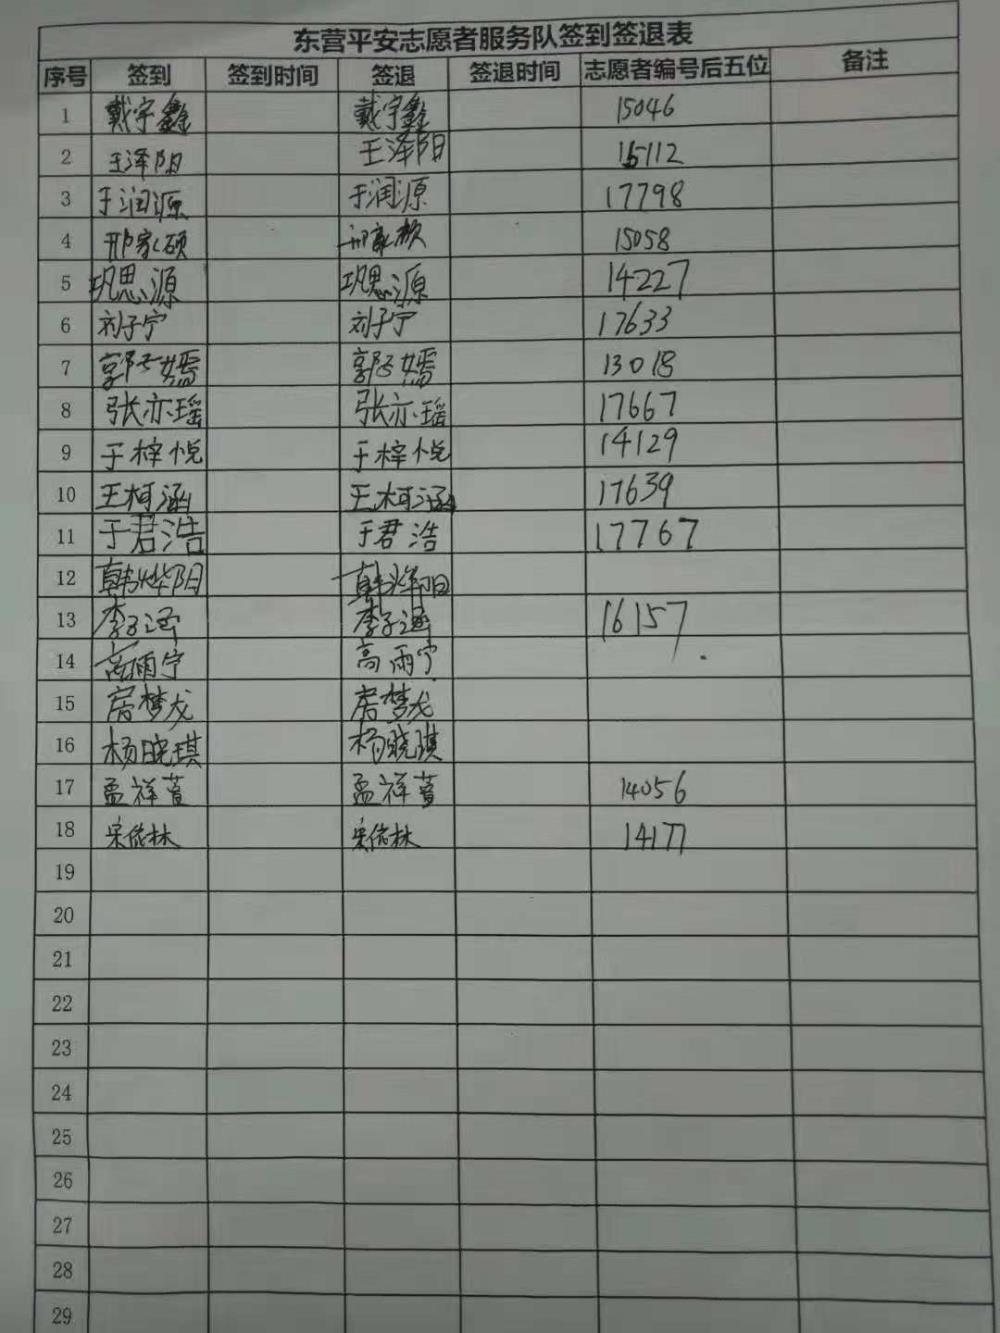 东营平安志愿者服务队签到签退表
序号 签到 签到时间 签退 签退时间 志愿者编号后五位 备注
1 戴宇鑫 戴宇鑫 15046
2 王泽阳 王泽阳 15112
3 于润源 于润源 17798
4 邢家硕 邢家硕 15058
5 巩思源 巩思源 14227
6 刘子宁 刘子宁 17633
7 郭子嫣 郭子嫣 13018
8 张亦瑶 张亦瑶 17667
9 于梓悦 于梓悦 14129
10 王柯涵 王柯涵 17639
11 于君浩 于君浩 17767
12 韩烨阳 韩烨阳
13 李子涵 李子涵 16157
14 高雨宁 高雨宁
15 房梦龙 房梦龙
16 杨晓琪 杨晓琪
17 孟祥萱 孟祥萱 14056
18 宋佲林 宋佲林 14177
19
20
21
22
23
24
25
26
27
28
29